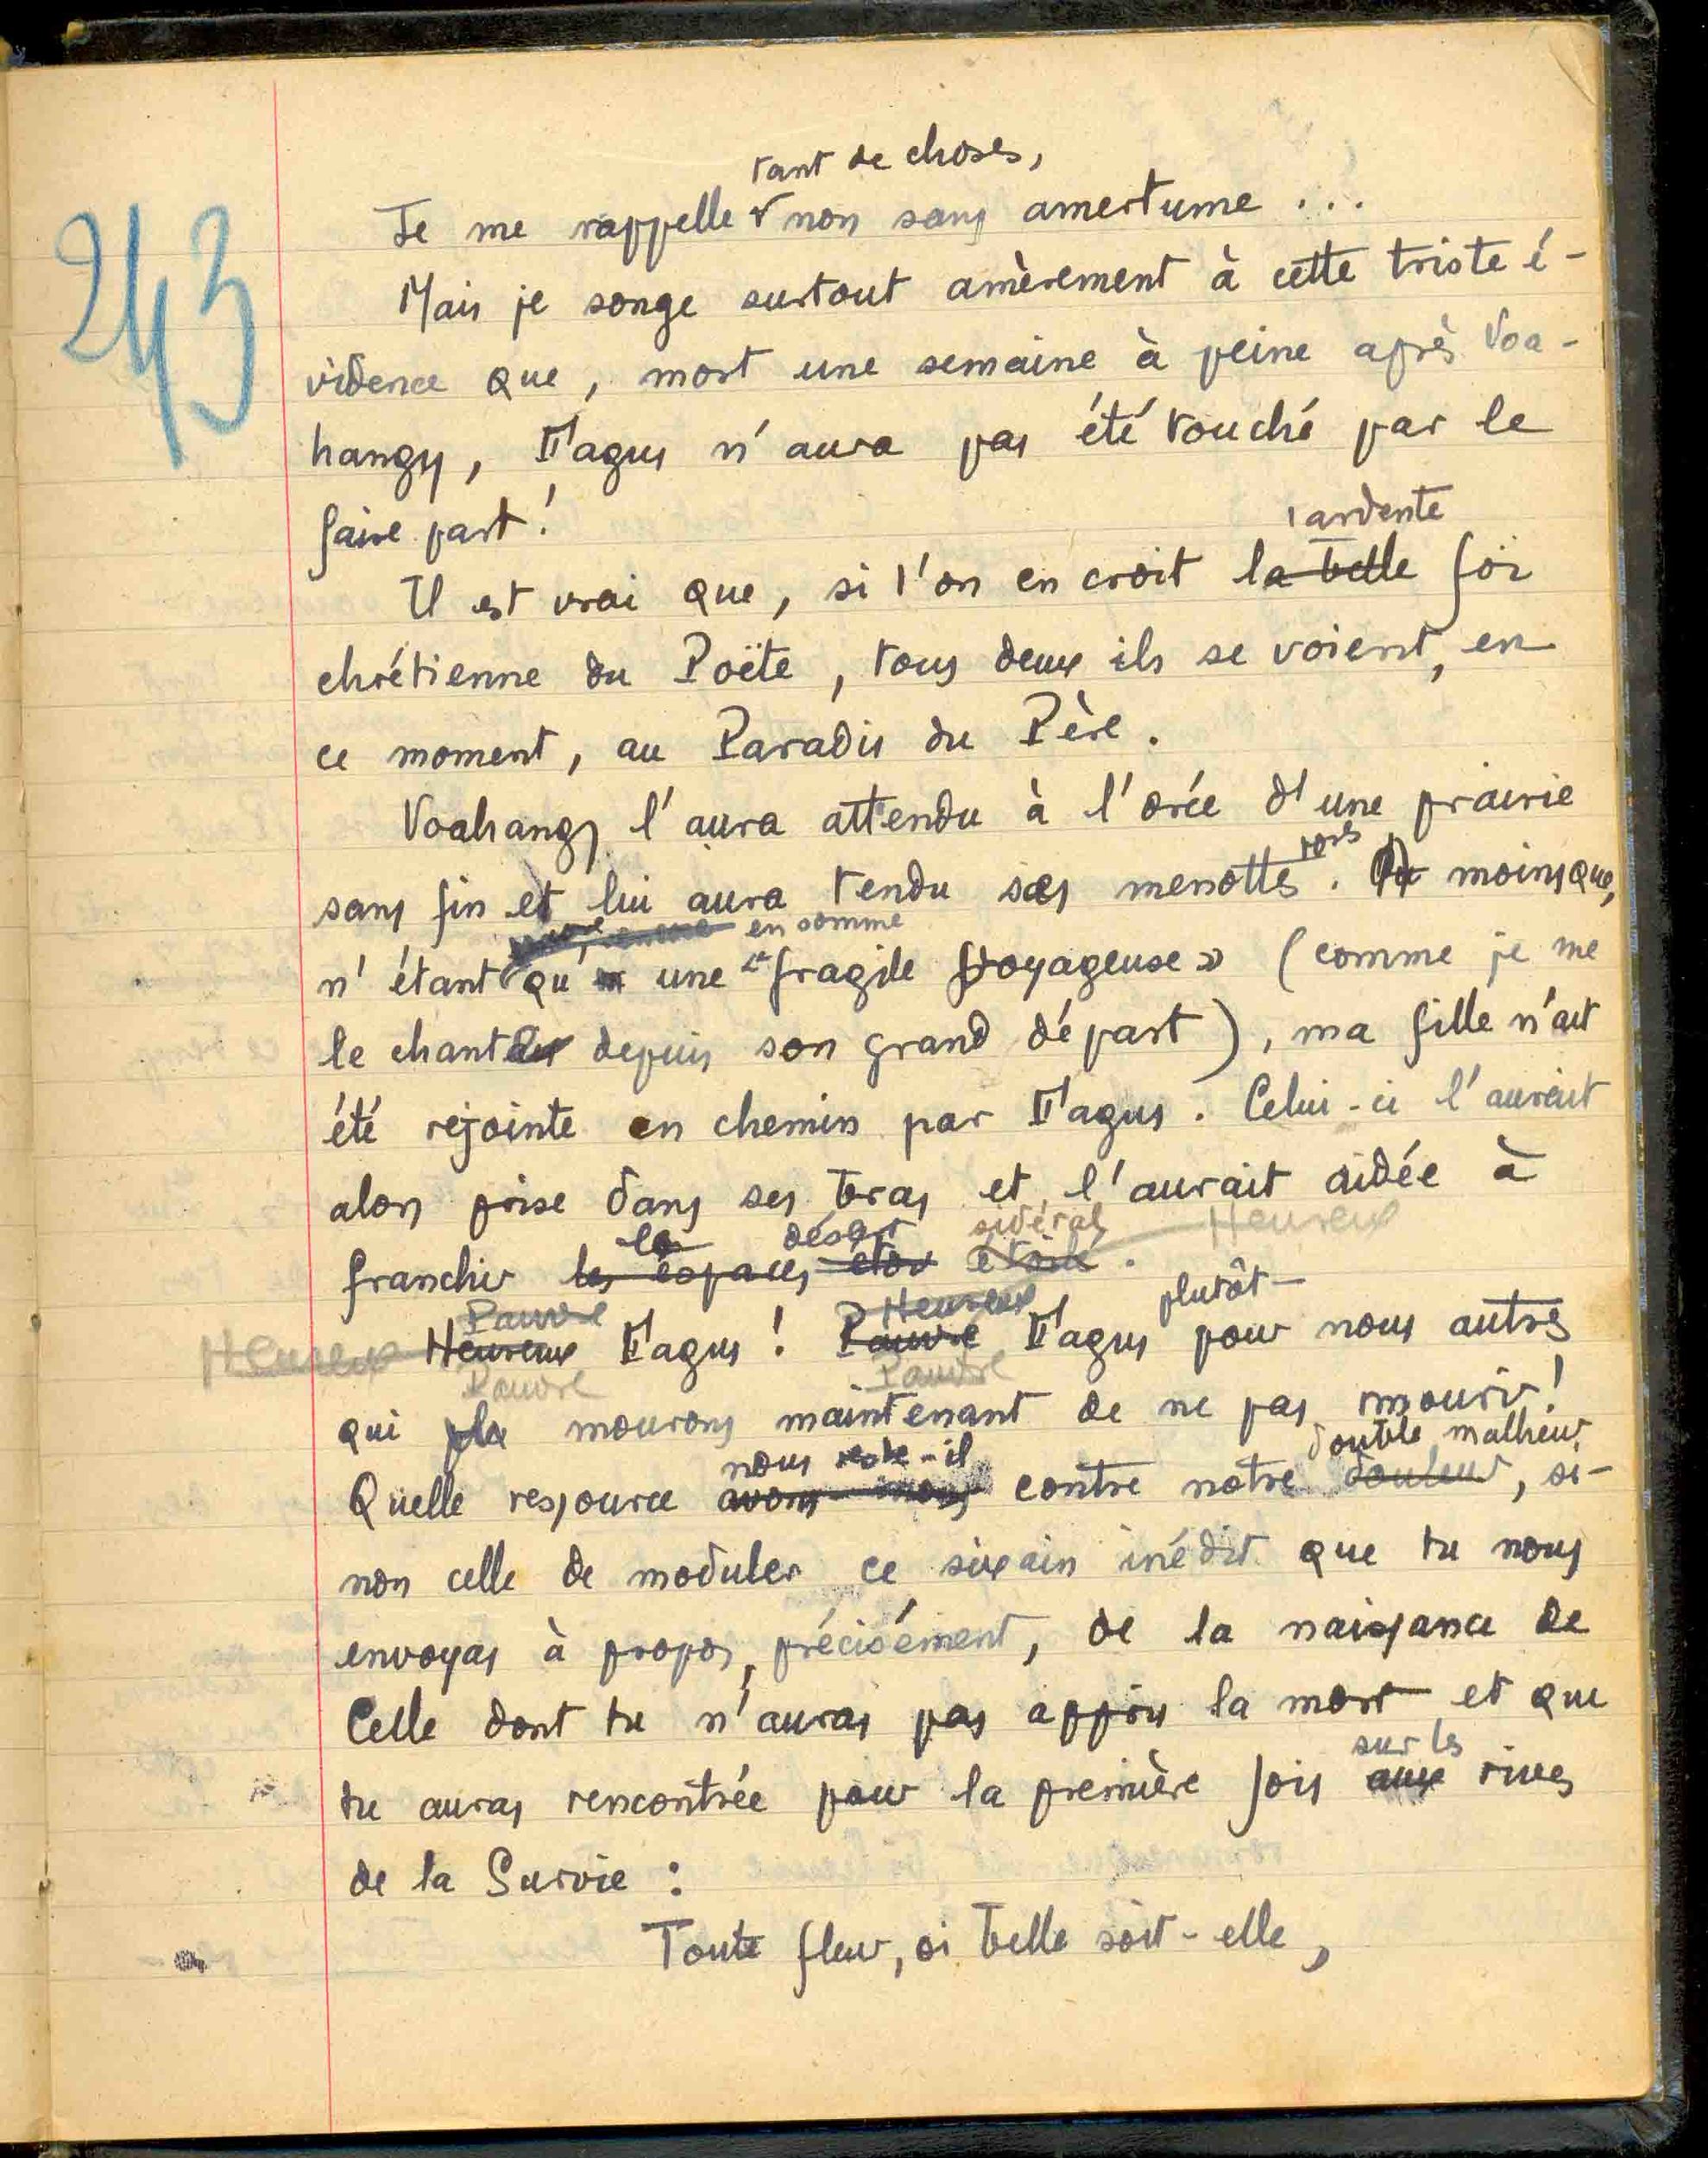 243
tant de choses,
Je me rappelle non sans amertume ...
Mais je songe surtout amèrement à cette triste é-
vidence que, mort une semaine à peine après Voa-
hangy, Fagus n'aura pas été touché par le
faire part !
l'ardente
Il est vrai que, si l'on en croit la belle foi
chrétienne du Poëte, tous deux ils se voient, en
ce moment, au Paradis du Père.
Voahangy l'aura attendu à l'orée d'une prairie
sans fin et lui aura tendu ses menottes. moins que,
en somme
n'étant qu'une "fragile voyageuse" (comme je me
le chante depuis son grand départ), ma fille n'ait
été rejointe en chemin par Fagus. Celui-ci l'aurait
alors prise dans ses bras et l'aurait aidée à
le désert sidéral Heureux
franchir les espaces étoilé.
Pauvre Heureux plutôt
Heureux Heureux Fagus ! Pauvre Fagus pour nous autres
Pauvre Pauvre
qui mourons maintenant de ne pas mourir !
nous reste-il double malheur
Quelle ressource avons-nous contre notre douleur, si-
non celle de moduler ce sixain inédit que tu nous
envoyas à propos, précisément, de la naissance de
Celle dont tu n'auras pas appris la mort et que
sur les
tu auras rencontrée pour la première fois aux rives
de la Survie :
Toute fleur, si belle soit-elle,